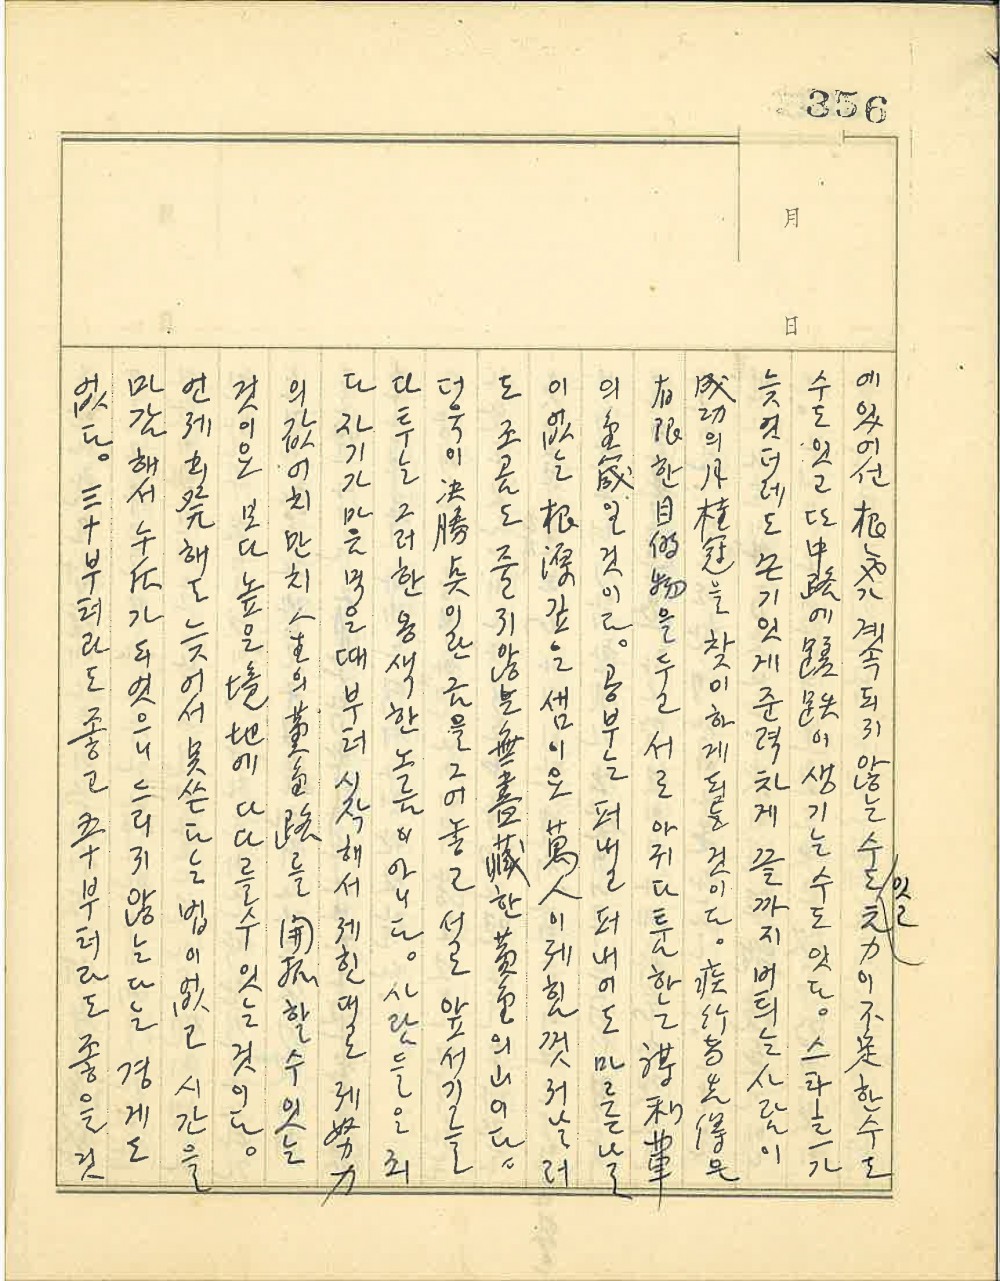 356
月
日
에 있어선 根氣가 계속되지 않는 수도 잇고 力이 不足한 수도
수도 잇고 또 中路에 蹉跌이 생기는 수도 잇다。 스타트가
늦엇더래도 끈기잇게 준력차게 끝까지 버틔는 사람이
成功의 月桂冠을 찾이하게 되는 것이다。 疾行者先得은
有限한 目的物을 두고 서로 아귀다툼 하는 謀利輩
의 金箴일 것이다。 공부는 퍼내고 퍼내어도 마를 날
이 없는 根源 같은 샘이오 萬人이 제 힘껏 저 날러
도 조곰도 줄지 않는 無盡藏한 黃金의 山이다。
더욱이 決勝点이란 금을 그어 놓고 서로 앞서기를
다투는 그러한 옹색한 노름이 아니다。 사람들은 죄
다 자기가 마음 먹을 때부터 시작해서 제 힌대로 제 努力
의 값어치만치 人生의 黃金路를 開拓할 수 잇는
것이오 보다 높은 境地에 다다를 수 잇는 것이다。
언제 出発해도 늦어서 못 쓴다는 법이 없고 시간을
마감해서 누가 되엿으니 드리지 않는다는 경게도
없다。 三十부터라도 좋고 五十부터라도 좋을 것